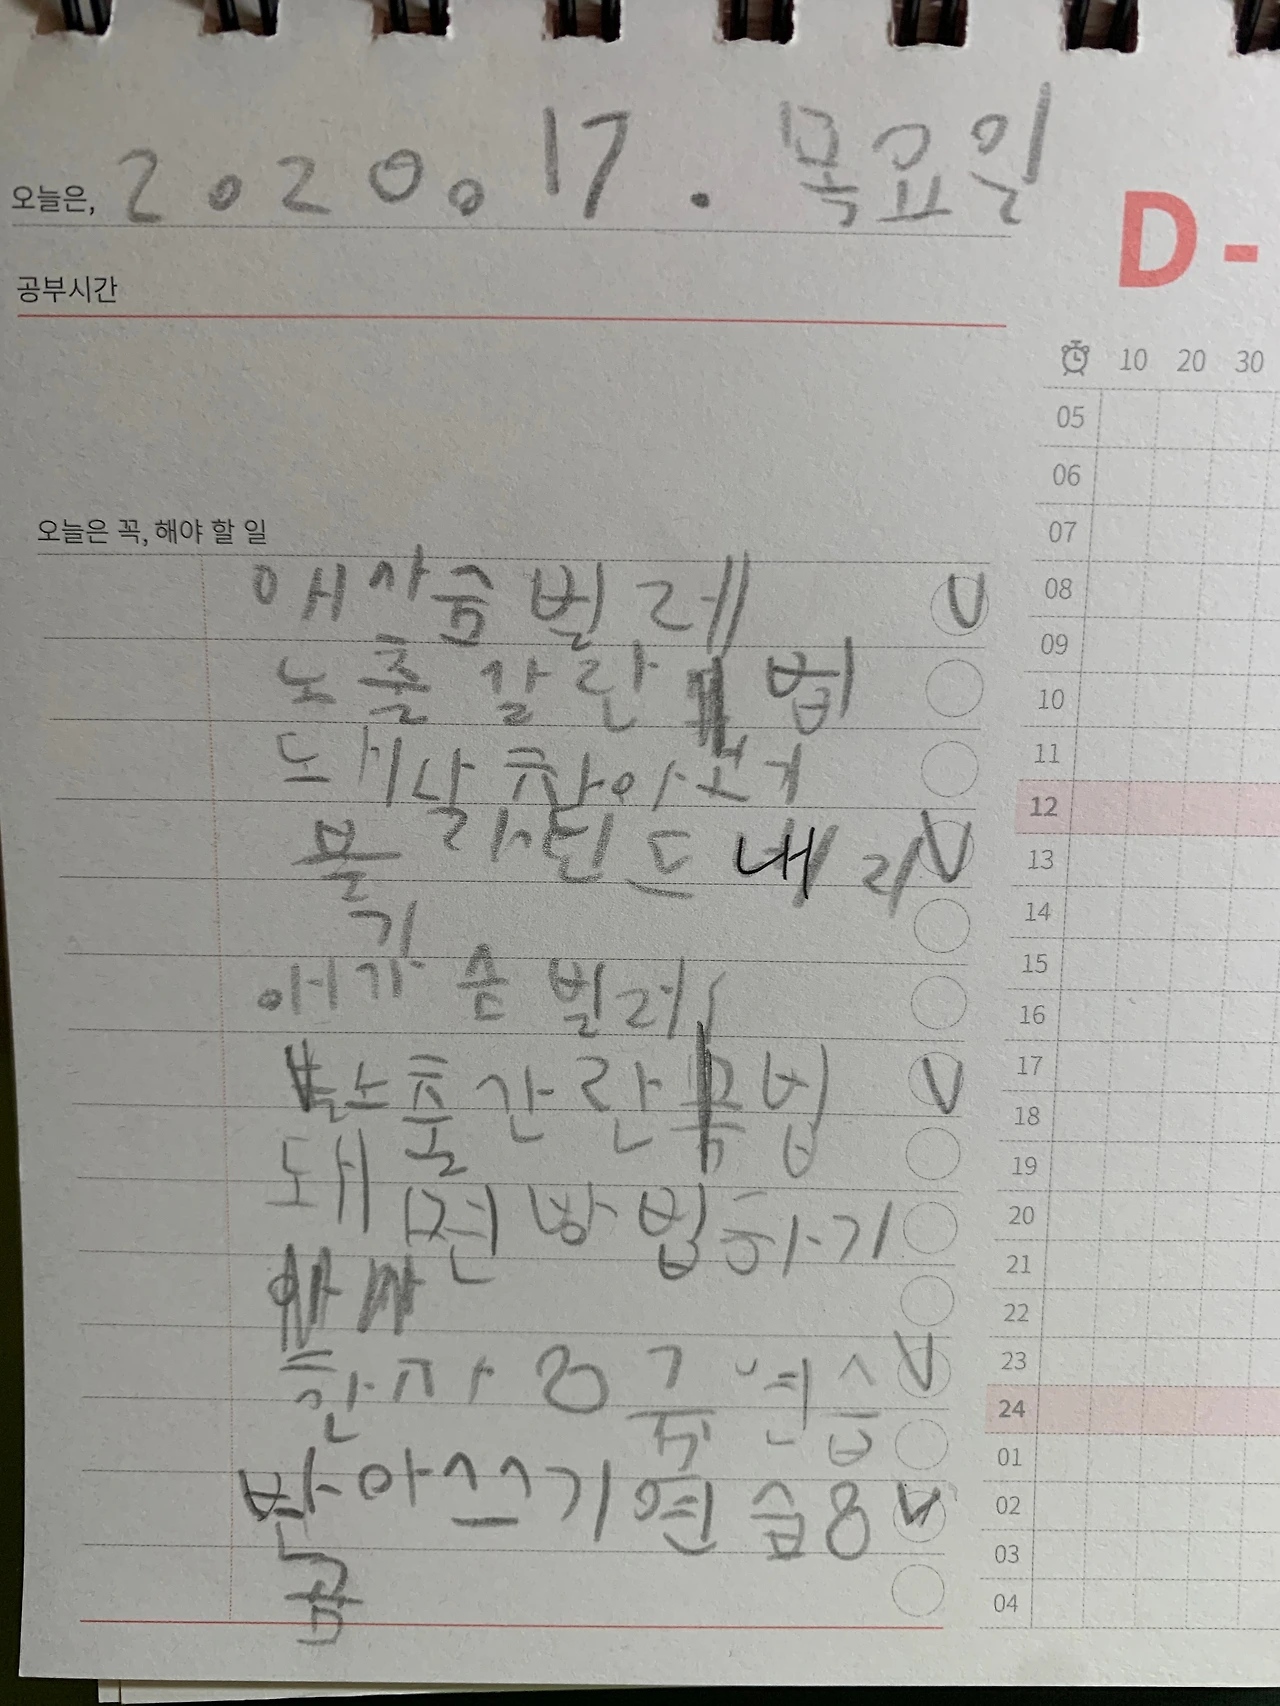 오늘은, 2020. 17. 목요일
D-
공부시간
10 20 30
05
06
07
오늘은 꼭, 해야 할 일
애사슴벌레
노출 갈란 법
도새날 찬아
불 드 내리
기
애가슴벌레
소출간란 법
도새 전방법하기
한자 8 주 연습
받아쓰기 연습 8
곰
08
09
10
11
12
13
14
15
16
17
18
19
20
21
22
23
24
01
02
03
04